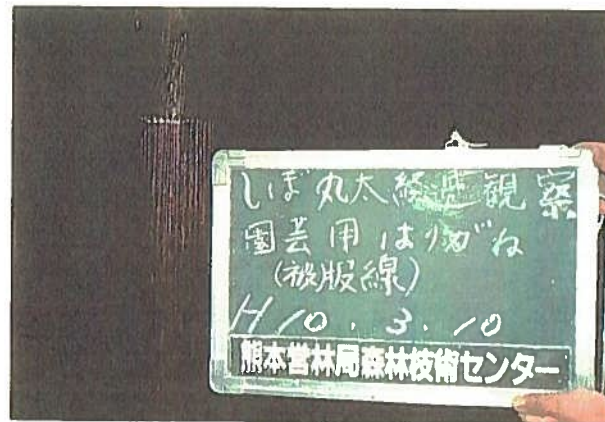 しぼ丸太経過観察
園芸用はりがね
(被服線)
H10.3.10
熊本営林局森林技術センター